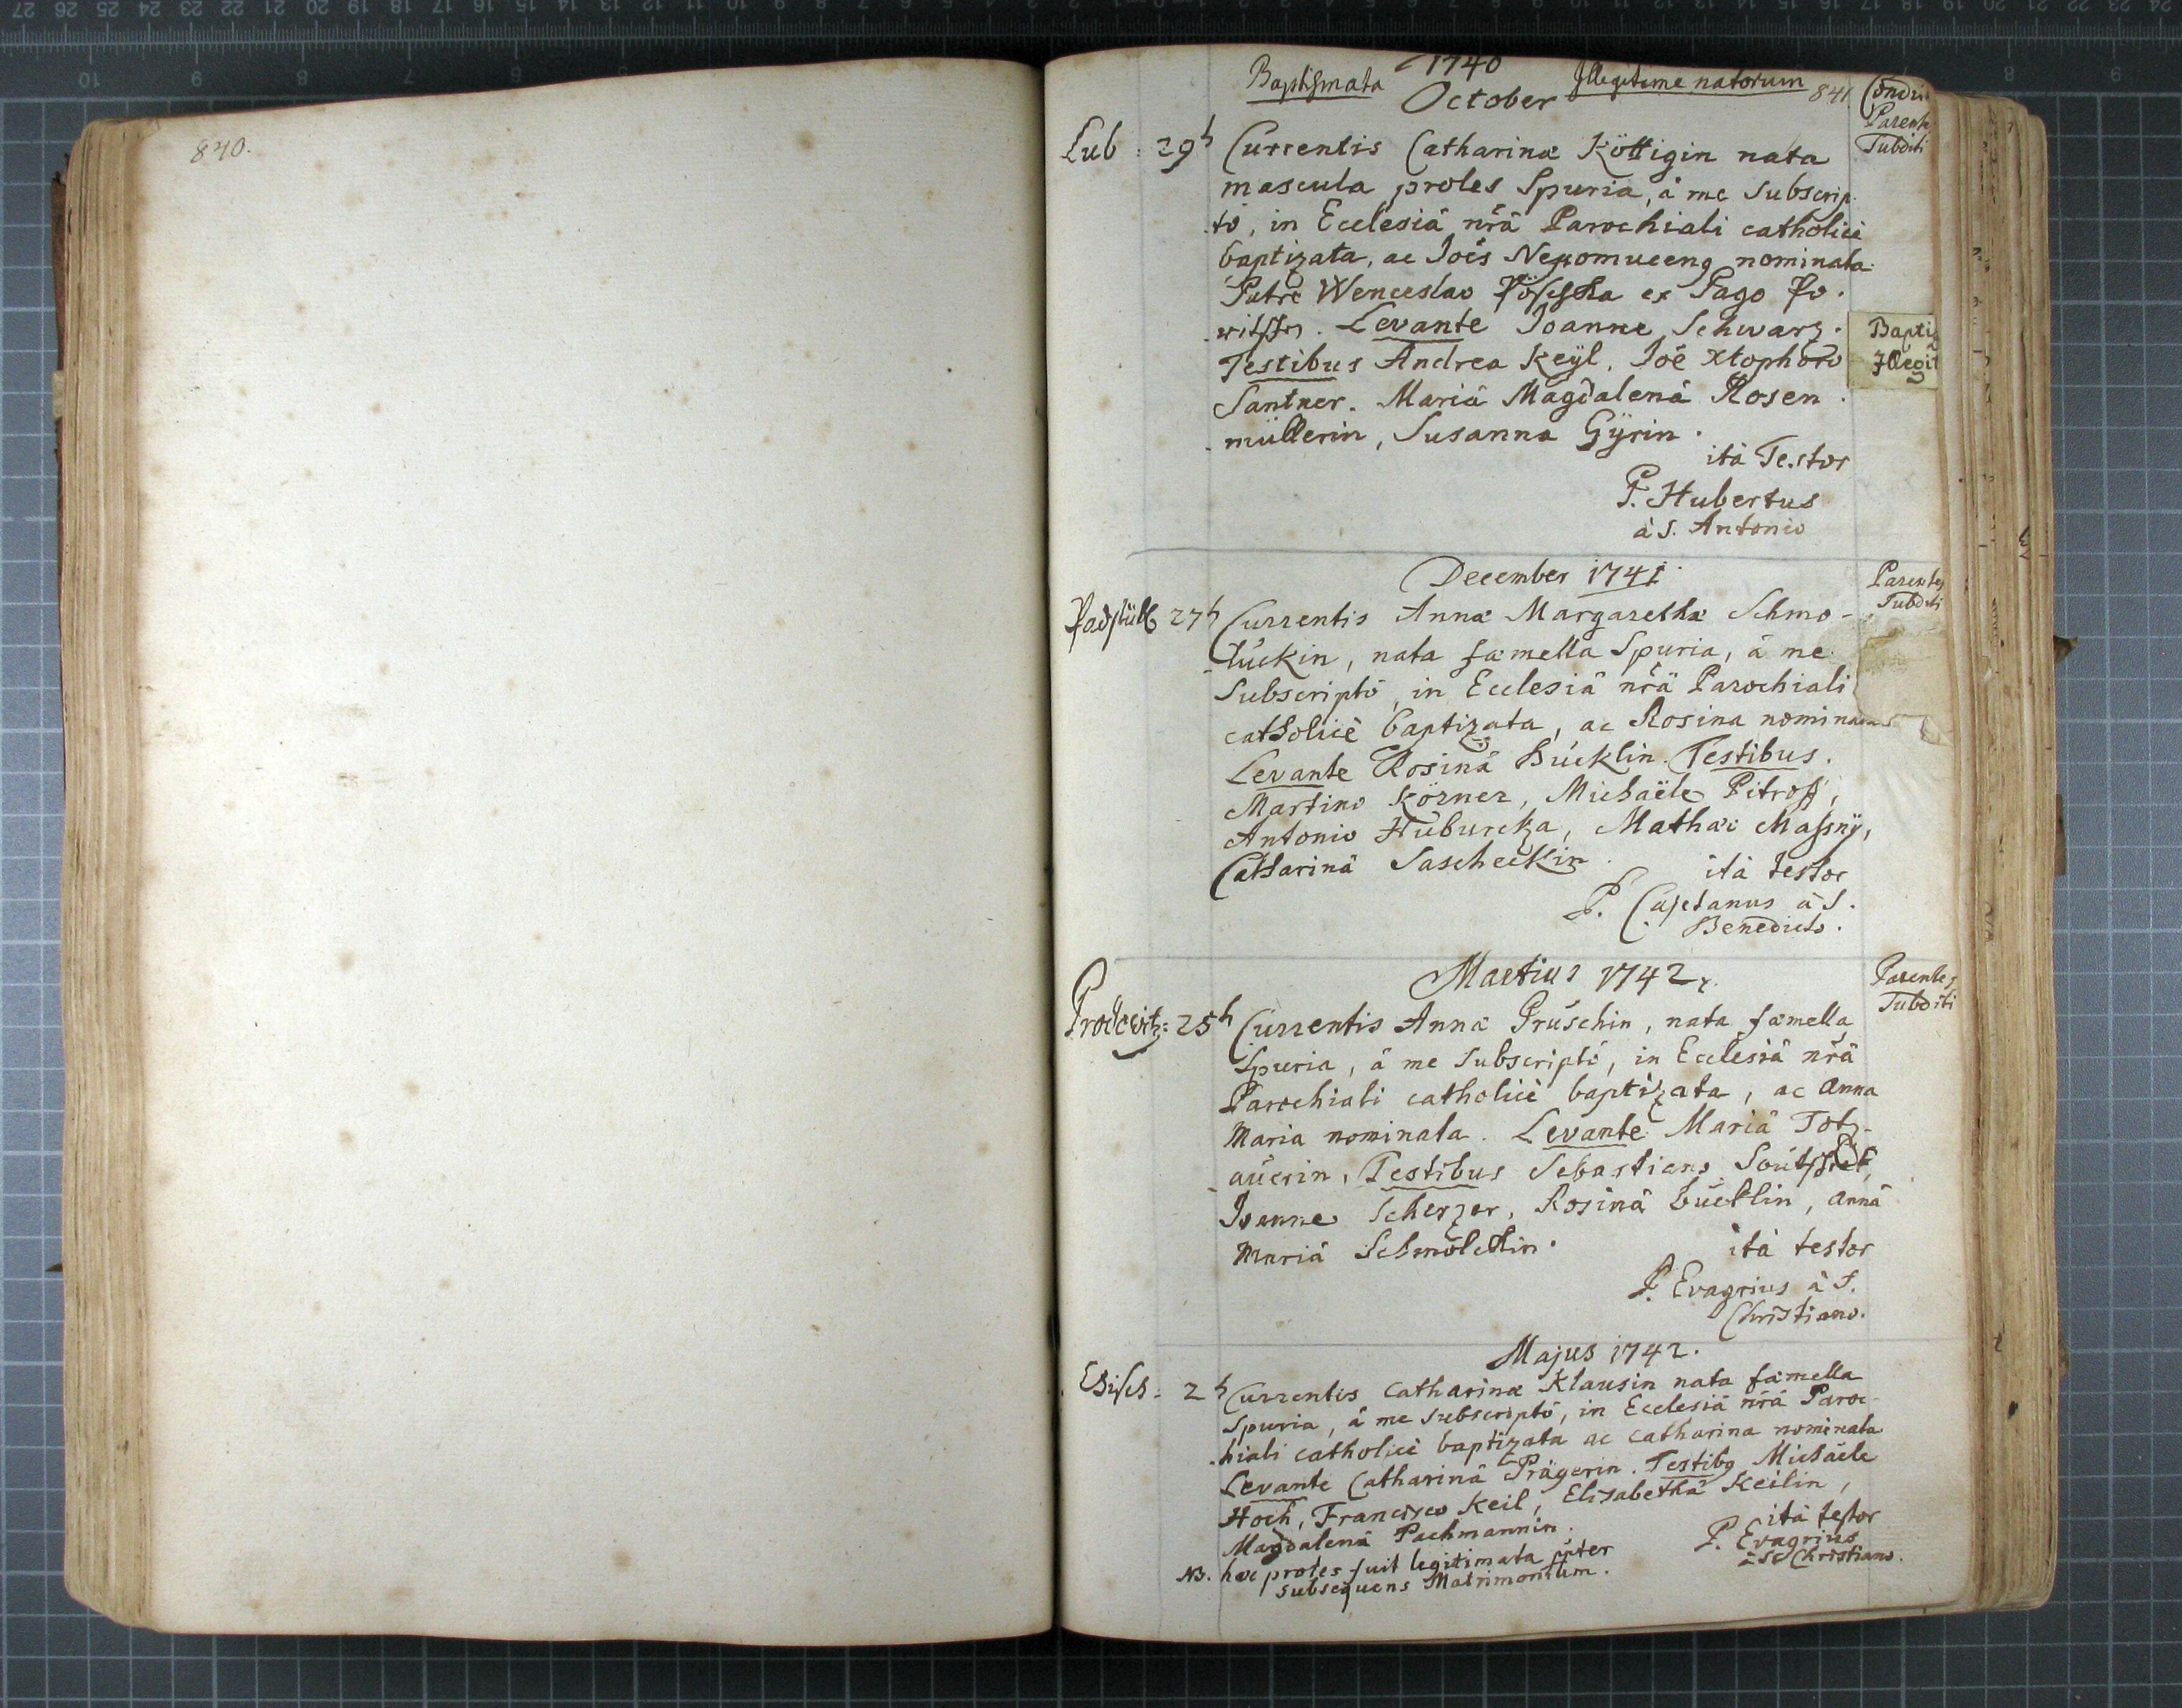 840.
1740
Baptismata
October
Illegitime natorum
841
Parent
Subditi
Lub : 29 Currentis Catharinæ Köttigin nata
mascula proles Spuria, à me Subscrip.
tô, in Ecclesiâ nrâ Parochiali catholicè
baptizata, ac Joês Nepomuceng nominata.
Patre Wenceslao ex Pago
Levante Joanne Schwarz.
Testibus Andrea Keÿl, Joê Xtophoro
Santner. Mariâ Magdalenâ Rosen
müllerin, Susanna Gÿrin.
ità Testor
P. Hubertus
à S. Antonio
Bapti
Illegit
December 1741
Parentes
Subditi
27 Currentis Anna Margaretha Schmo-
lückin, nata fæmella Spuria, à me
Subscriptô, in Ecclesiâ nrâ Parochiali
catholicè baptizata, ac Rosina nominata
Levante Rosinâ Bücklin. Testibus.
Martino Körner, Michaële Pitroff,
Antonio Huburcka, Mathæo Massnÿ,
Catharinâ Sascheckin.
ità testor
P. Cajetanus à S.
Benedicto.
Martius 1742.
Parentes
Subditi
25 Currentis Anna Prüschin, nata fæmella
Spuria, à me Subscriptô, in Ecclesiâ nrâ
Parochiali catholicè baptizata, ac Anna
Maria nominata. Levante Mariâ Totz-
auerin, Testibus Sebastiano
Joanne Scherzer, Rosinâ Bücklin, Annâ
Mariâ Schmolckin.
ità testor
P. Evagrius à S.
Christiano.
Majus 1742.
2 Currentis Catharinæ Klausin nata fæmella
Spuria, à me subscriptô, in Ecclesiâ nrâ Paroc-
hiali catholicè baptizata ac Catharina nominata
Levante Catharinâ Prägerin. Testibg Michaële
Hoch, Francisco Keil, Elisabethâ Keilin,
Magdalenâ Pachmannin.
ità testor
P. Evagrius
à S. Christiano.
NB. hæc proles fuit legitimata per
subsequens Matrimonium.